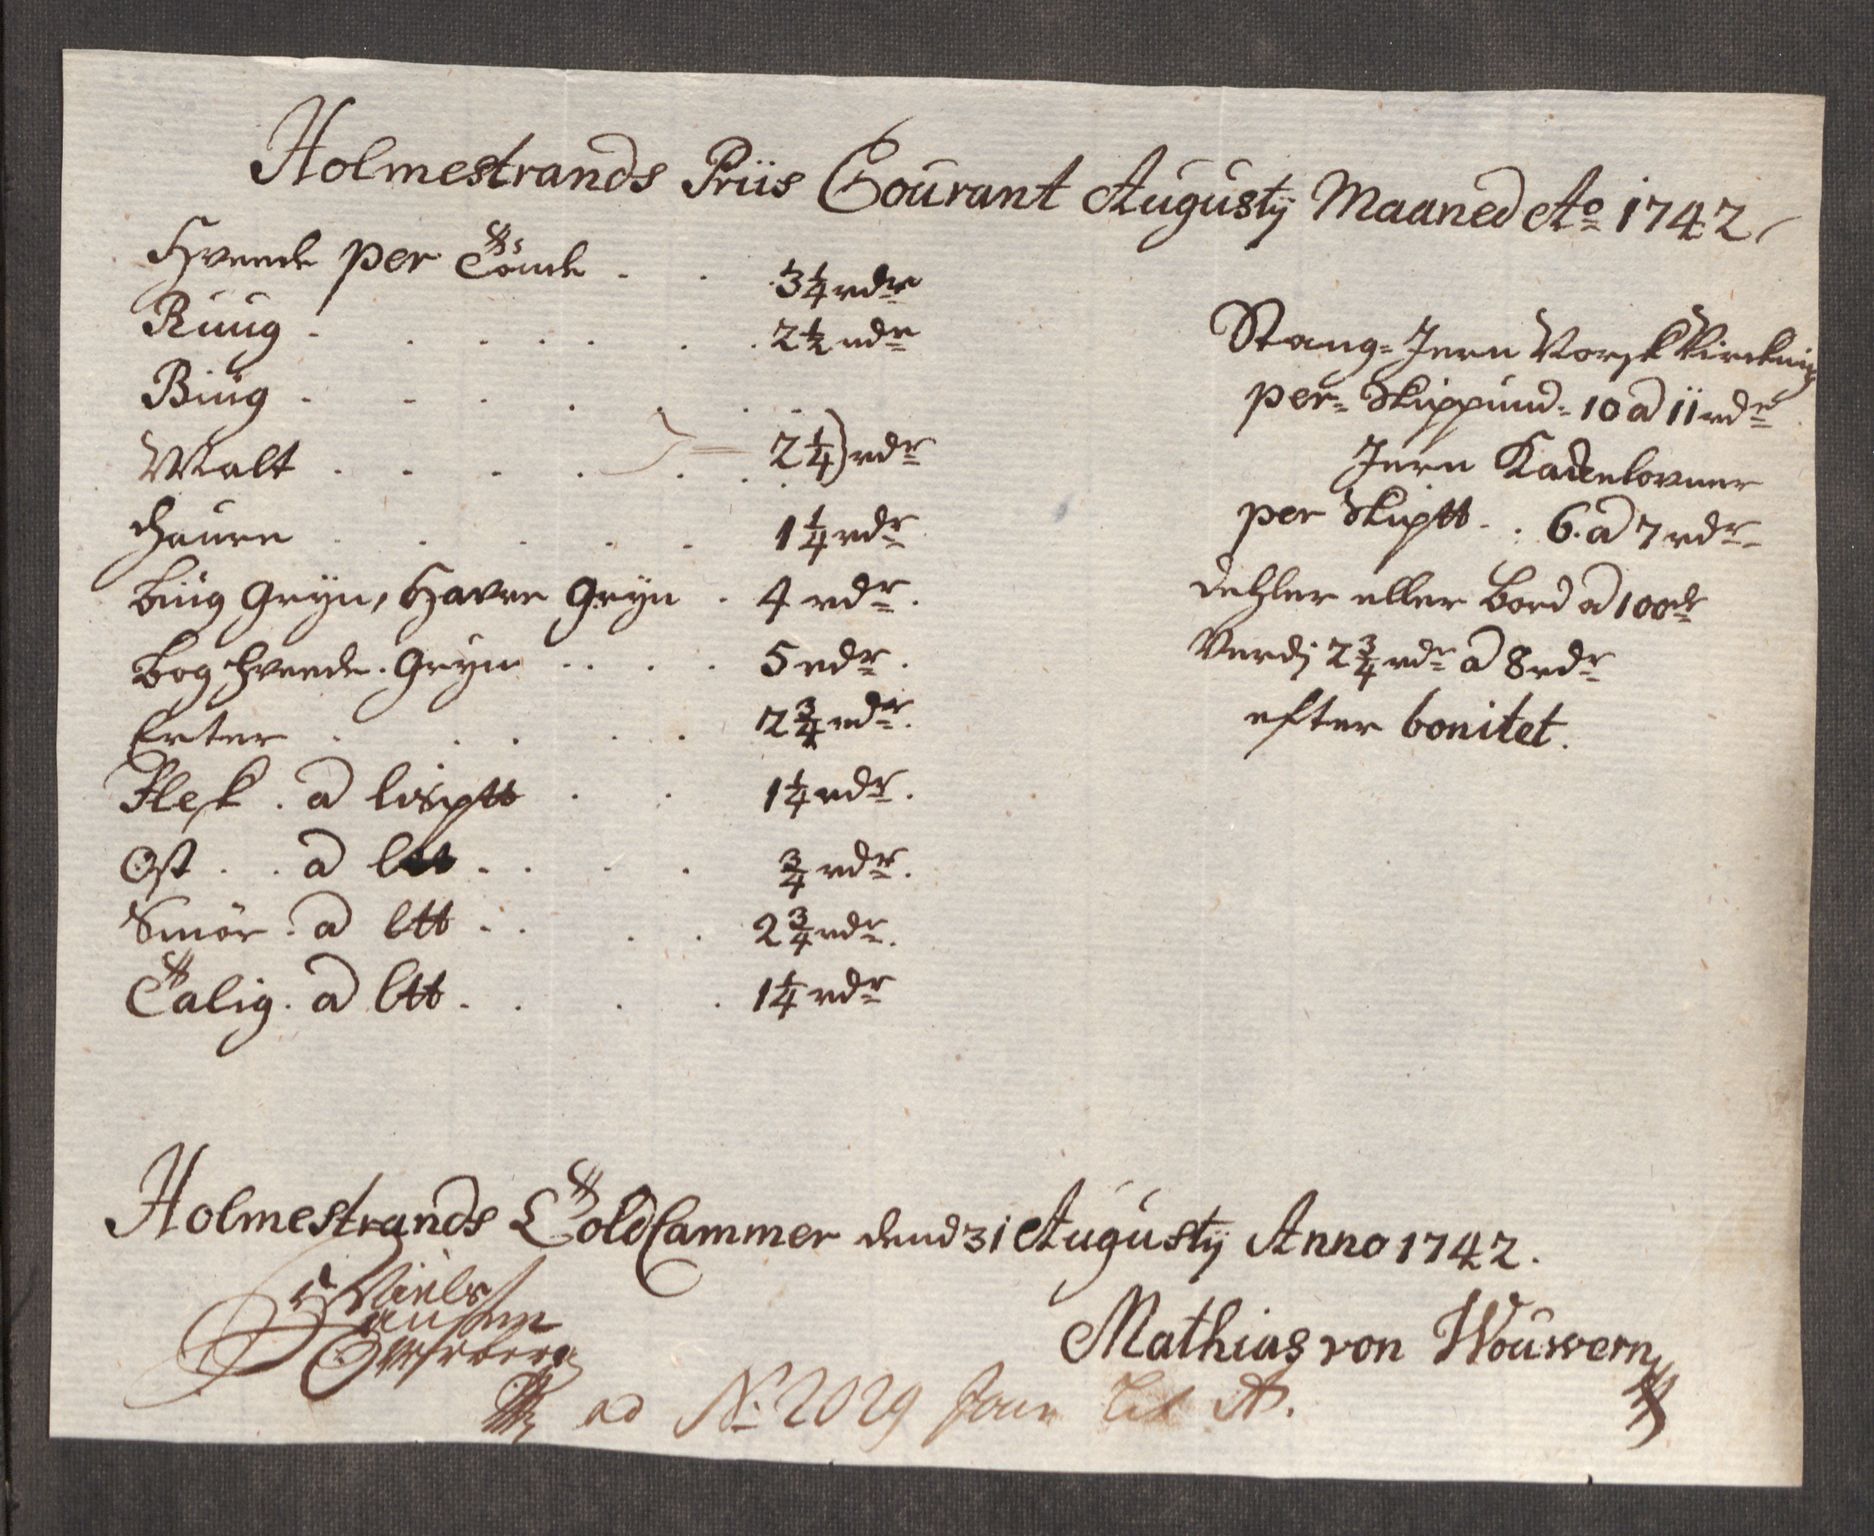 Holmestrands Priis Courant Augustij Maaned Ao 1742
Hveede per Tönde . . 3 1/4 rdr
Ruug . . . . . . 2 1/2 rdr
Biug . . . . . .
Malt . . . . . . 2 1/4) rdr
Haure . . . . . 1 1/4 rdr
Biug Gryn, Havre Gryn . 4 rdr.
Boghveede Gryn . . . . 5 rdr.
Erter . . . . . 2 3/4 rdr.
Flesk . a lisptt . . 1 1/4 rdr.
Ost . . a ltt . . . . 3/4 rdr.
Smör . a ltt . . . . 2 3/4 rdr.
Talig . a ltt . . . . 1 1/4 rdr
Stang=Jern Norsk Virckning
per= Skippund= 10 a 11 rdr
Jern Kackelovner
per Skiptt . . 6. a 7 rdr
Dehler eller Bord a 100de
Verdj 2 3/4 rdr a 8 rdr
efter bonitet.
Holmestrands ToldCammer dend 31 Augustij Anno 1742.
Niels
Hansen
Mathias von Wouwern
ad No 2029 Jour Lit A.